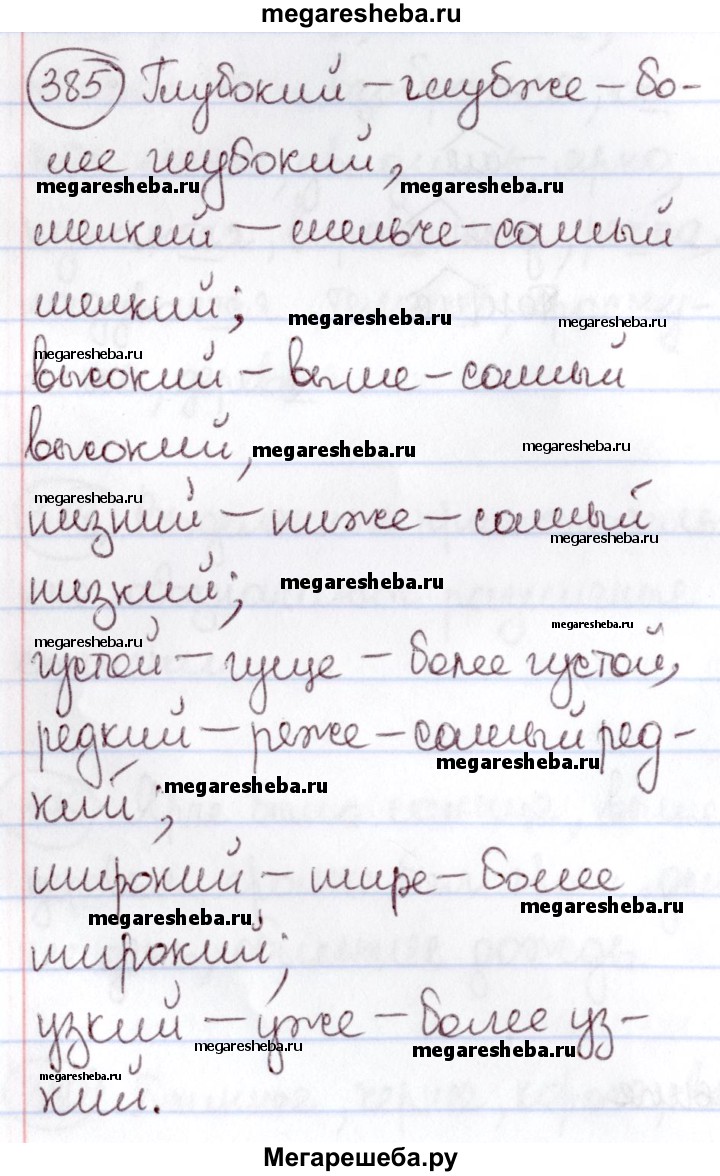 megaresheba.ru
385 Глубокий – глубже – бо-
лее глубокий,
megaresheba.ru megaresheba.ru
мелкий – мельче – самый
мелкий;
megaresheba.ru megaresheba.ru
megaresheba.ru
высокий – выше – самый
высокий,
megaresheba.ru megaresheba.ru
megaresheba.ru
низкий – ниже – самый
megaresheba.ru
низкий;
megaresheba.ru
megaresheba.ru
megaresheba.ru
густой – гуще – более густой,
редкий – реже – самый ред-
megaresheba.ru
megaresheba.ru
кий;
широкий – шире – более
megaresheba.ru megaresheba.ru
широкий;
узкий – у́же – более уз-
megaresheba.ru megaresheba.ru
megaresheba.ru
кий.
Мегарешеба.ру